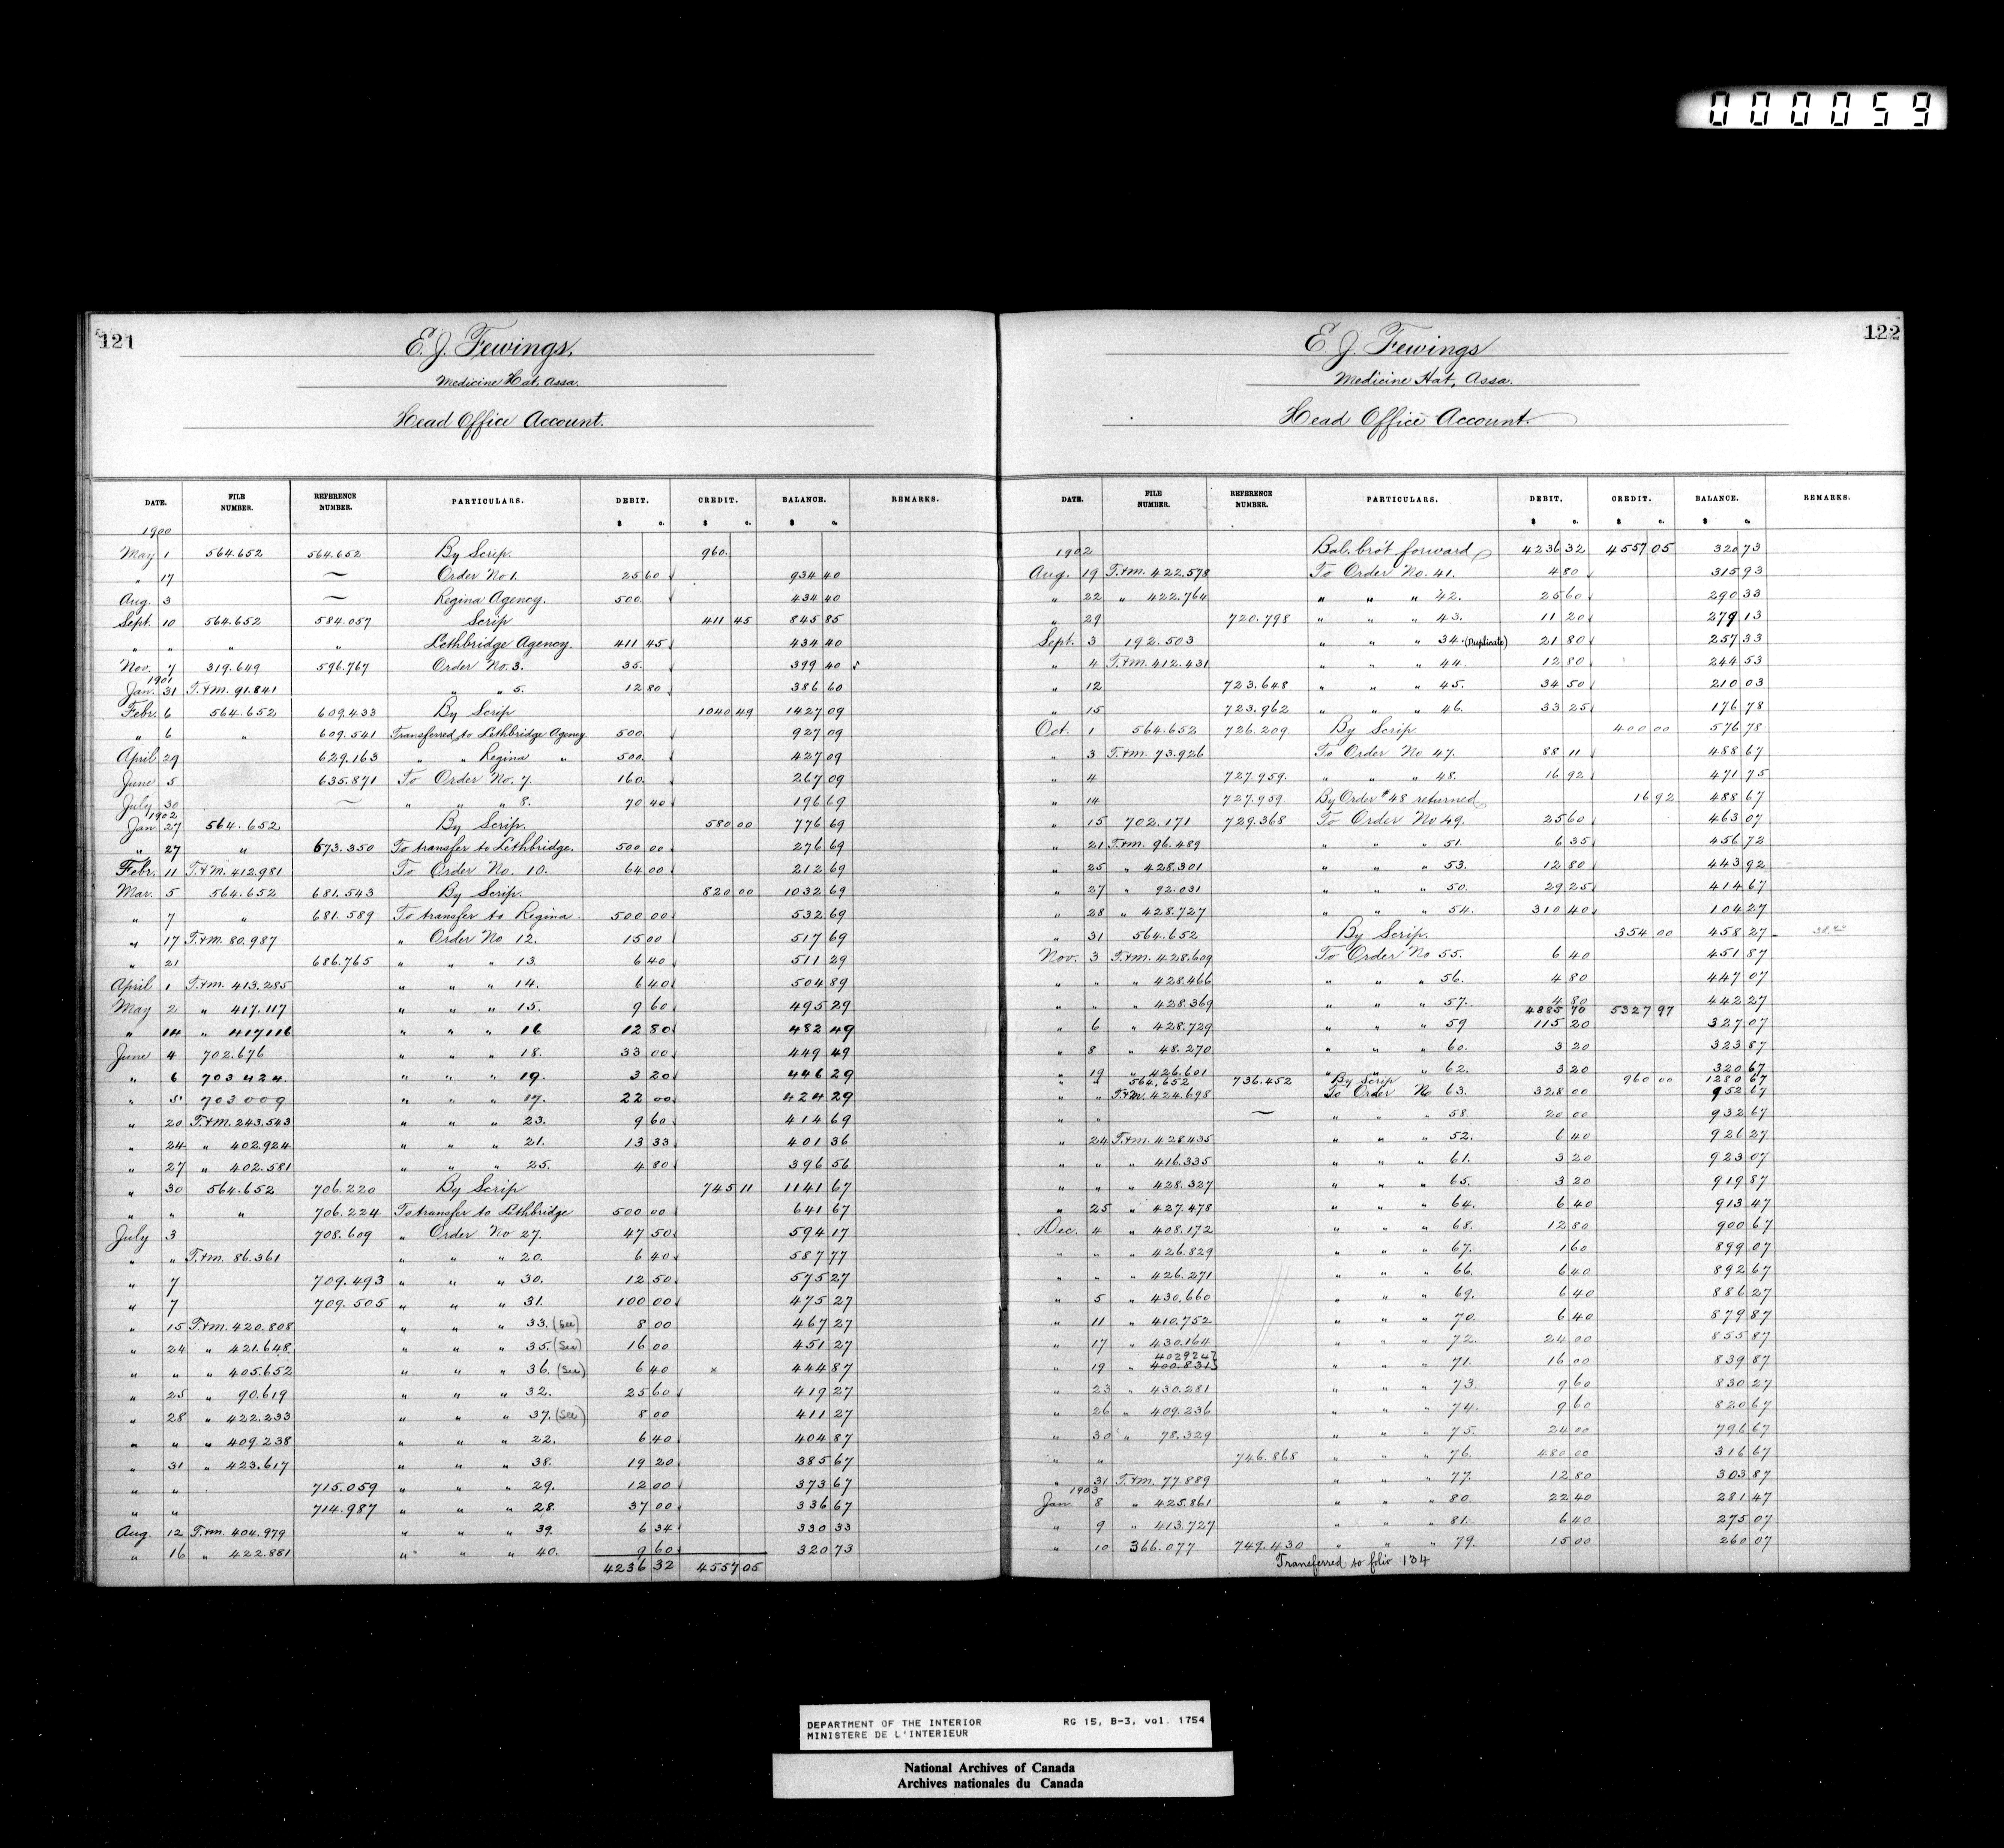 000059
121
E. J. Fewings,
Medicine Hat, Assa.
Head Office Account.
DATE. FILE NUMBER. REFERENCE NUMBER. PARTICULARS. DEBIT. CREDIT. BALANCE. REMARKS.
$ c. $ c. $ c.
1900
May 1 564.652 564.652 By Scrip. 960.
" 17 — Order No 1. 25 60 934 40
Aug. 3 — Regina Agency. 500. 434 40
Sept. 10 564.652 584.057 Scrip 411 45 845 85
" " " " Lethbridge Agency. 411 45 434 40
Nov. 7 319.649 596.767 Order No. 3. 35. 399 40
1901
Jan. 31 T.&M. 91.841 " " 5. 12 80 386 60
Febr. 6 564.652 609.433 By Scrip 1040 49 1427 09
" 6 " 609.541 Transferred to Lethbridge Agency. 500. 927 09
April 29 629.163 " " Regina " 500. 427 09
June 5 635.871 To Order No. 7. 160. 267 09
July 30 — " " " 8. 70 40 196 69
1902
Jan. 27 564.652 By Scrip. 580 00 776 69
" 27 " 673.350 To transfer to Lethbridge. 500 00 276 69
Febr. 11 T.&M. 412.981 To Order No. 10. 64 00 212 69
Mar. 5 564.652 681.543 By Scrip. 820 00 1032 69
" 7 " 681.589 To transfer to Regina. 500 00 532 69
" 17 T.&M. 80.987 " Order No 12. 15 00 517 69
" 21 686.765 " " " 13. 6 40 511 29
April 1 T.&M. 413.285 " " " 14. 6 40 504 89
May 2 " 417.117 " " " 15. 9 60 495 29
" 14 " 417116 " " " 16 12 80 482 49
June 4 702.676 " " " 18. 33 00 449 49
" 6 703424. " " " 19. 3 20 446 29
" 5 703009 " " " 17. 22 00 424 29
" 20 T.&M. 243.543 " " " 23. 9 60 414 69
" 24 " 402.924 " " " 21. 13 33 401 36
" 27 " 402.581 " " " 25. 4 80 396 56
" 30 564.652 706.220 By Scrip 745 11 1141 67
" " " 706.224 To transfer to Lethbridge 500 00 641 67
July 3 708.609 " Order No 27. 47 50 594 17
" " T.&M. 86.361 " " " 20. 6 40 587 77
" 7 709.493 " " " 30. 12 50 575 27
" 7 709.505 " " " 31. 100 00 475 27
" 15 T.&M. 420.808 " " " 33. (See) 8 00 467 27
" 24 " 421.648 " " " 35. (See) 16 00 451 27
" " " 405.652 " " " 36. (See) 6 40 x 444 87
" 25 " 90.619 " " " 32. 25 60 419 27
" 28 " 422.233 " " " 37. (See) 8 00 411 27
" " " 409.238 " " " 22. 6 40 404 87
" 31 " 423.617 " " " 38. 19 20 385 67
" " 715.059 " " " 29. 12 00 373 67
" " 714.987 " " " 28. 37 00 336 67
Aug. 12 T.&M. 404.979 " " " 39. 6 34 330 33
" 16 " 422.881 " " " 40. 9 60 320 73
4236 32 4557 05
122
E. J. Fewings
Medicine Hat, Assa.
Head Office Account.
DATE. FILE NUMBER. REFERENCE NUMBER. PARTICULARS. DEBIT. CREDIT. BALANCE. REMARKS.
$ c. $ c. $ c.
1902 Bal. bro't forward 4236 32 4557 05 320 73
Aug. 19 T.&M. 422.578 To Order No. 41. 4 80 315 93
" 22 " 422.764 " " " 42. 25 60 290 33
" 29 720.798 " " " 43. 11 20 279 13
Sept. 3 192.503 " " " 34. (Duplicate) 21 80 257 33
" 4 T.&M. 412.431 " " " 44. 12 80 244 53
" 12 723.648 " " " 45. 34 50 210 03
" 15 723.962 " " " 46. 33 25 176 78
Oct. 1 564.652 726.209 By Scrip. 400 00 576 78
" 3 T.&M. 73.926 To Order No 47. 88 11 488 67
" 4 727.959. " " " 48. 16 92 471 75
" 14 727.959 By Order #48 returned. 16 92 488 67
" 15 702.171 729.368 To Order No 49. 25 60 463 07
" 21 T.&M. 96.489 " " " 51. 6 35 456 72
" 25 " 428.301 " " " 53. 12 80 443 92
" 27 " 92.031 " " " 50. 29 25 414 67
" 28 " 428.727 " " " 54. 310 40 104 27
" 31 564.652 By Scrip. 354 00 458 27
Nov. 3 T.&M. 428.609 To Order No 55. 6 40 451 87
" " " 428.466 " " " 56. 4 80 447 07
" " " 428.369 " " " 57. 4 80 442 27
4885 70 5327 97
" 6 " 428.729 " " " 59 115 20 327 07
" 8 " 48.270 " " " 60. 3 20 323 87
" 19 " 426.601 " " " 62. 3 20 320 67
" " 564.652 736.452 By Scrip 960 00 1280 67
" " T.&M. 424.698 To Order No 63. 328 00 952 67
" " — " " " 58. 20 00 932 67
" 24 T.&M. 428435 " " " 52. 6 40 926 27
" " " 416.335 " " " 61. 3 20 923 07
" " " 428.327 " " " 65. 3 20 919 87
" 25 " 427.478 " " " 64. 6 40 913 47
Dec. 4 " 408.172 " " " 68. 12 80 900 67
" " " 426.829 " " " 67. 1 60 899 07
" " " 426.271 " " " 66. 6 40 892 67
" 5 " 430.660 " " " 69. 6 40 886 27
" 11 " 410.752 " " " 70. 6 40 879 87
" 17 " 430.164 " " " 72. 24 00 855 87
402924
" 19 " 400.831 " " " 71. 16 00 839 87
" 23 " 430.281 " " " 73. 9 60 830 27
" 26 " 409.236 " " " 74. 9 60 820 67
" 30 " 78.329 " " " 75. 24 00 796 67
" " 746.868 " " " 76. 480 00 316 67
" 31 T.&M. 77.889 " " " 77. 12 80 303 87
1903
Jan. 8 " 425.861 " " " 80. 22 40 281 47
" 9 " 413.727 " " " 81. 6 40 275 07
" 10 366.077 749.430 " " " 79. 15 00 260 07
Transferred to folio 134
DEPARTMENT OF THE INTERIOR RG 15, B-3, vol. 1754
MINISTERE DE L'INTERIEUR
National Archives of Canada
Archives nationales du Canada